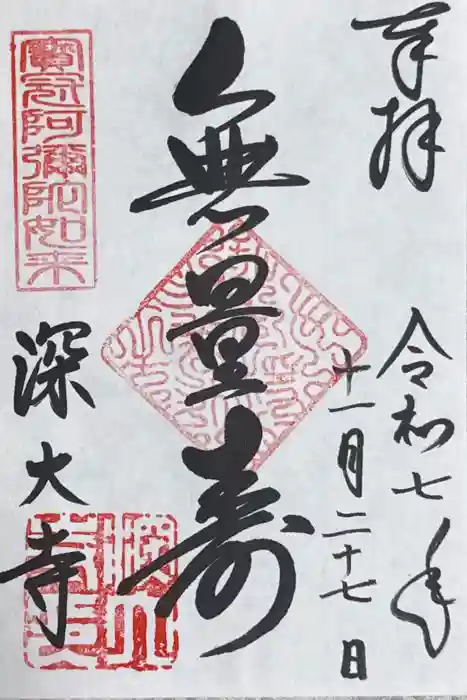 奉拝
令和七年
十一月二十七日
無量寿
寳冠阿彌陀如来
深大寺